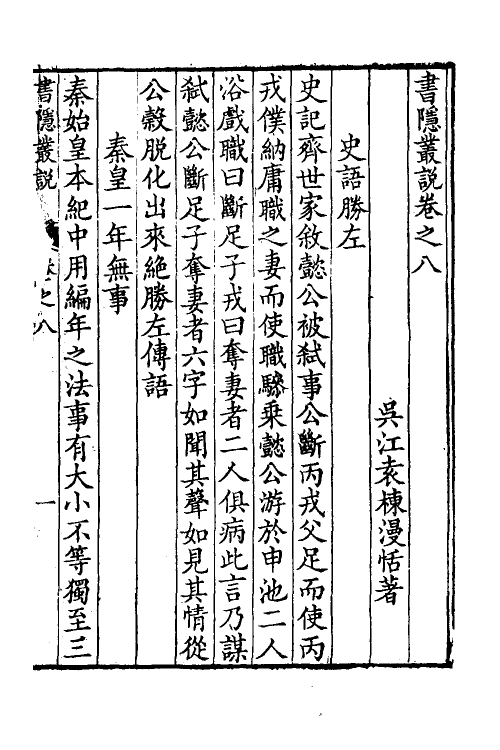 書隱叢說卷之八
吳江袁棟漫恬著
史語勝左
史記齊世家敘懿公被弑事公斷丙戎父足而使丙
戎僕納庸職之妻而使職驂乘懿公游於申池二人
浴戲職曰斷足子戎曰奪妻者二人俱病此言乃謀
弑懿公斷足子奪妻者六字如聞其聲如見其情從
公穀脱化出來絶勝左傳語
秦皇一年無事
秦始皇本紀中用編年之法事有大小不等獨至三
書隱叢說 卷之八 一